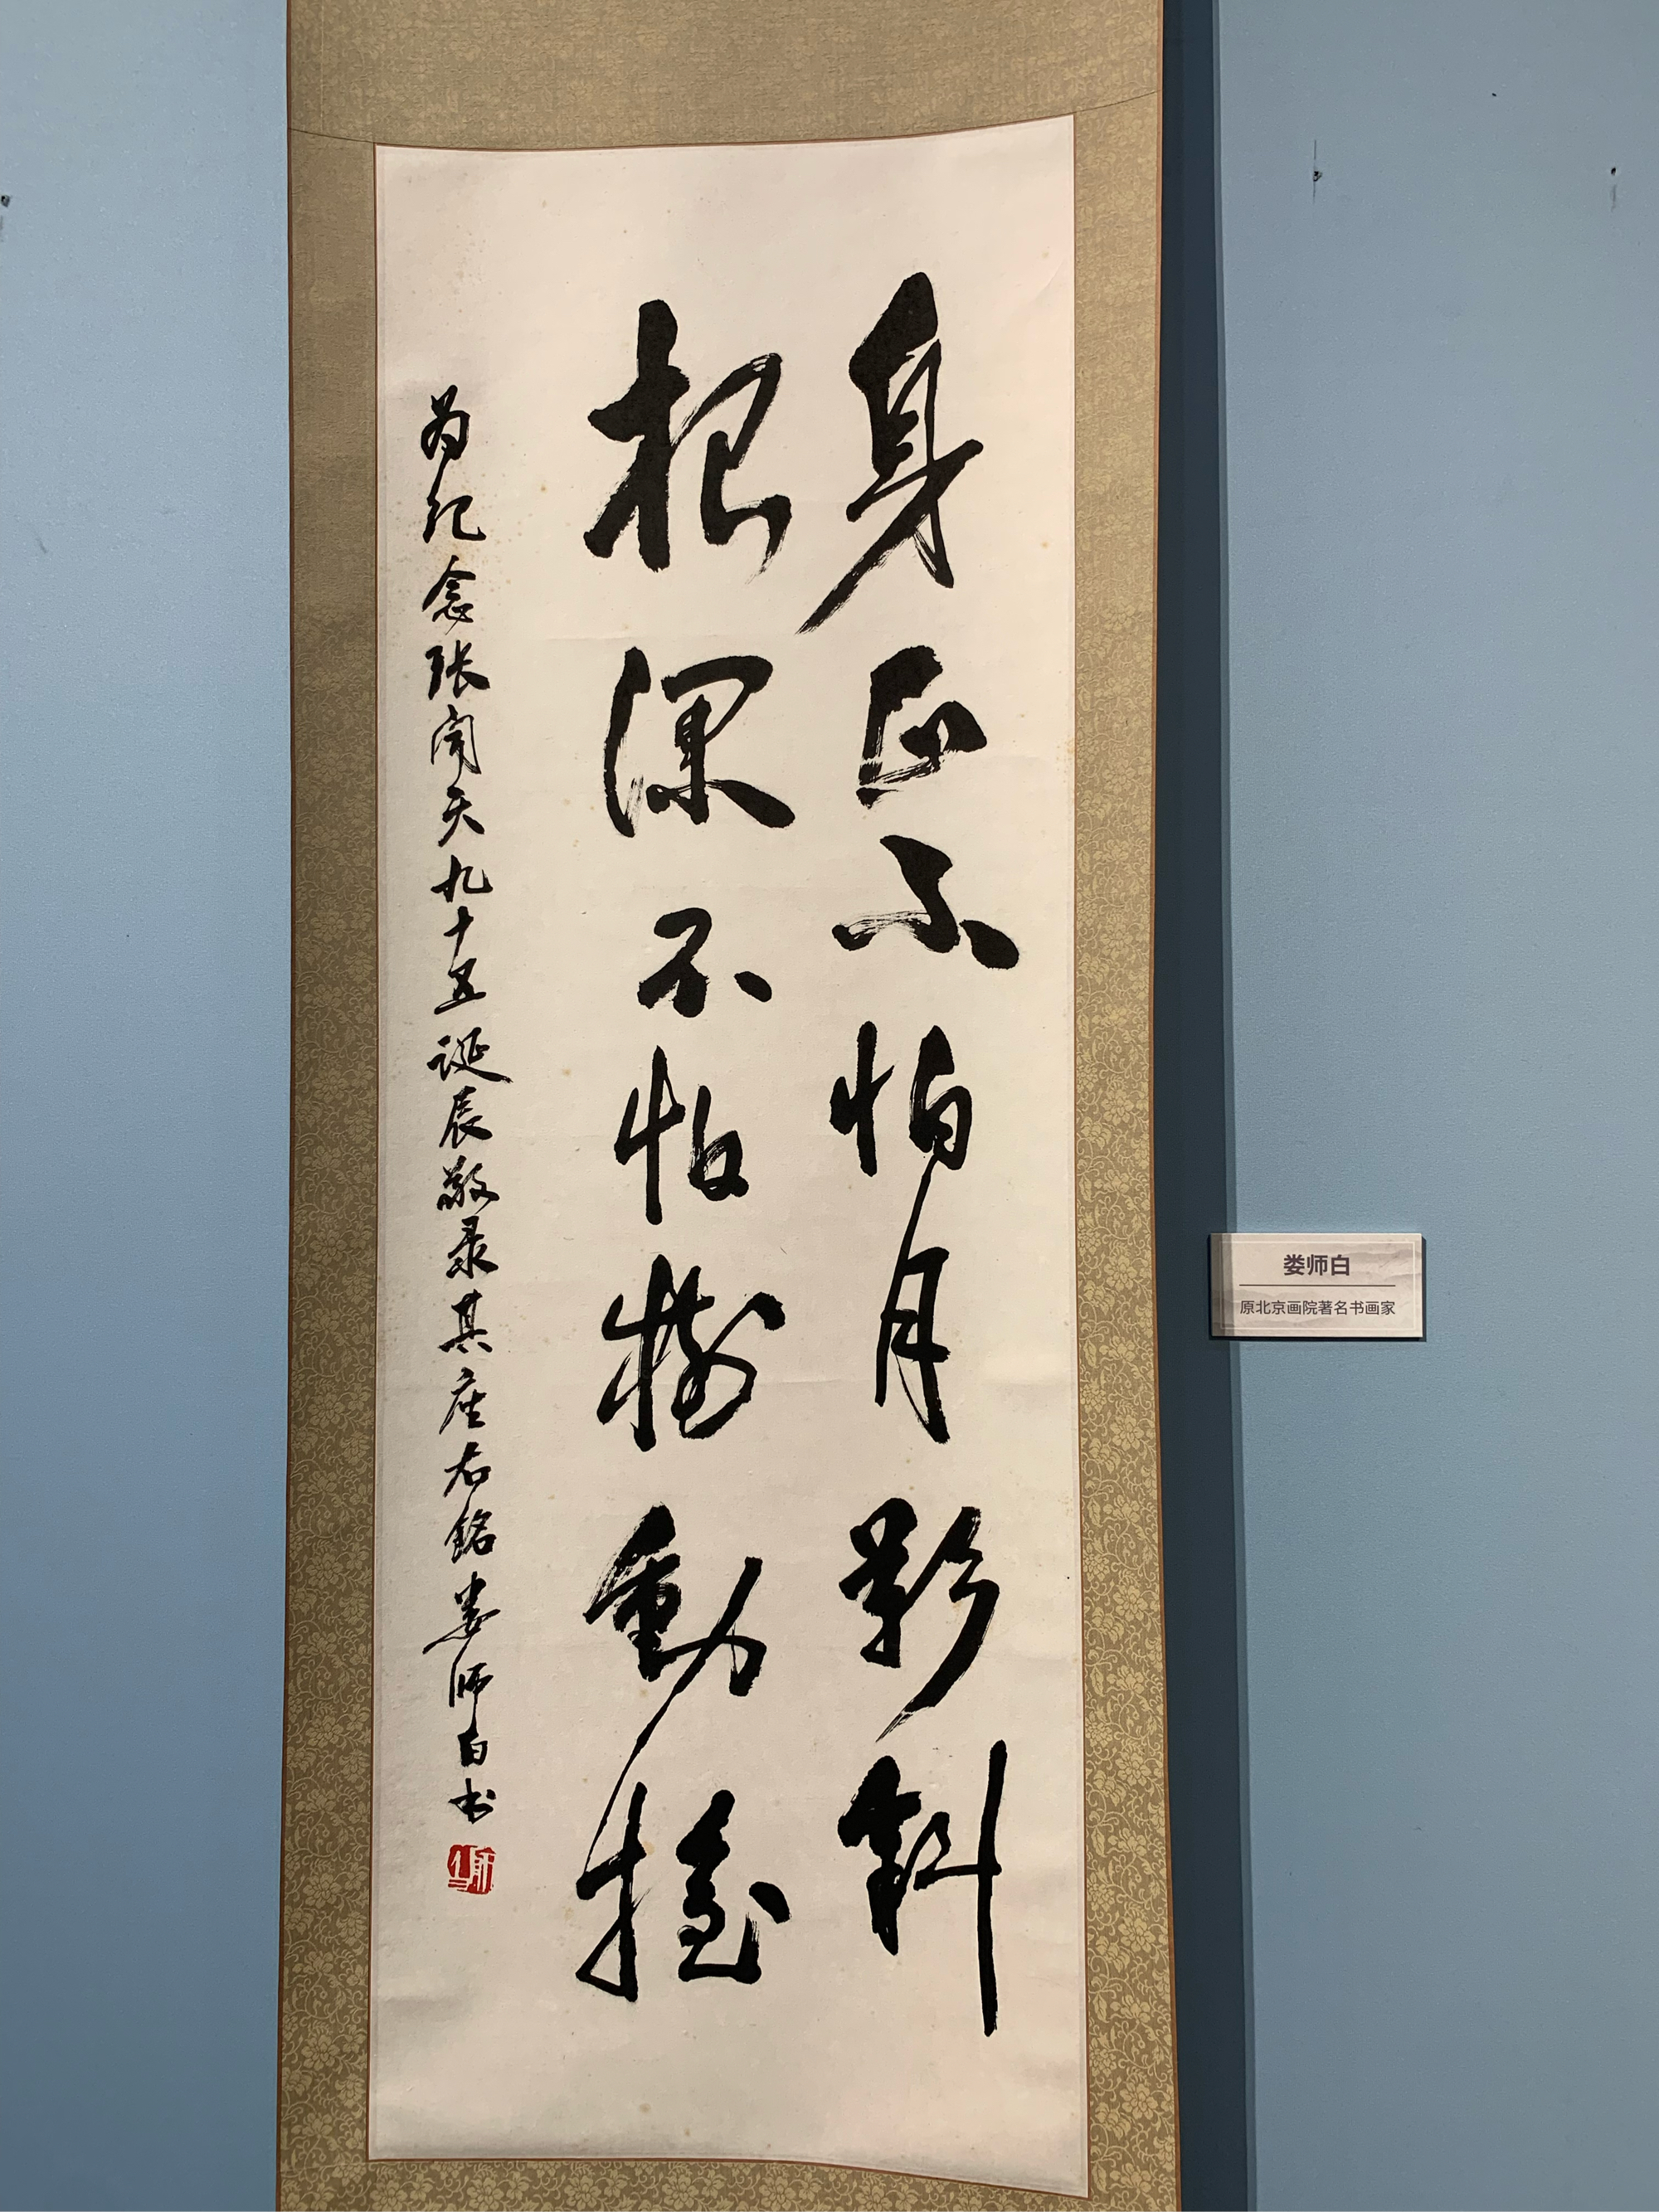 身正不怕月影斜
根深不怕树動摇
为纪念张闻天九十五诞辰敬录其座右銘娄师白书
娄师白
原北京画院著名书画家